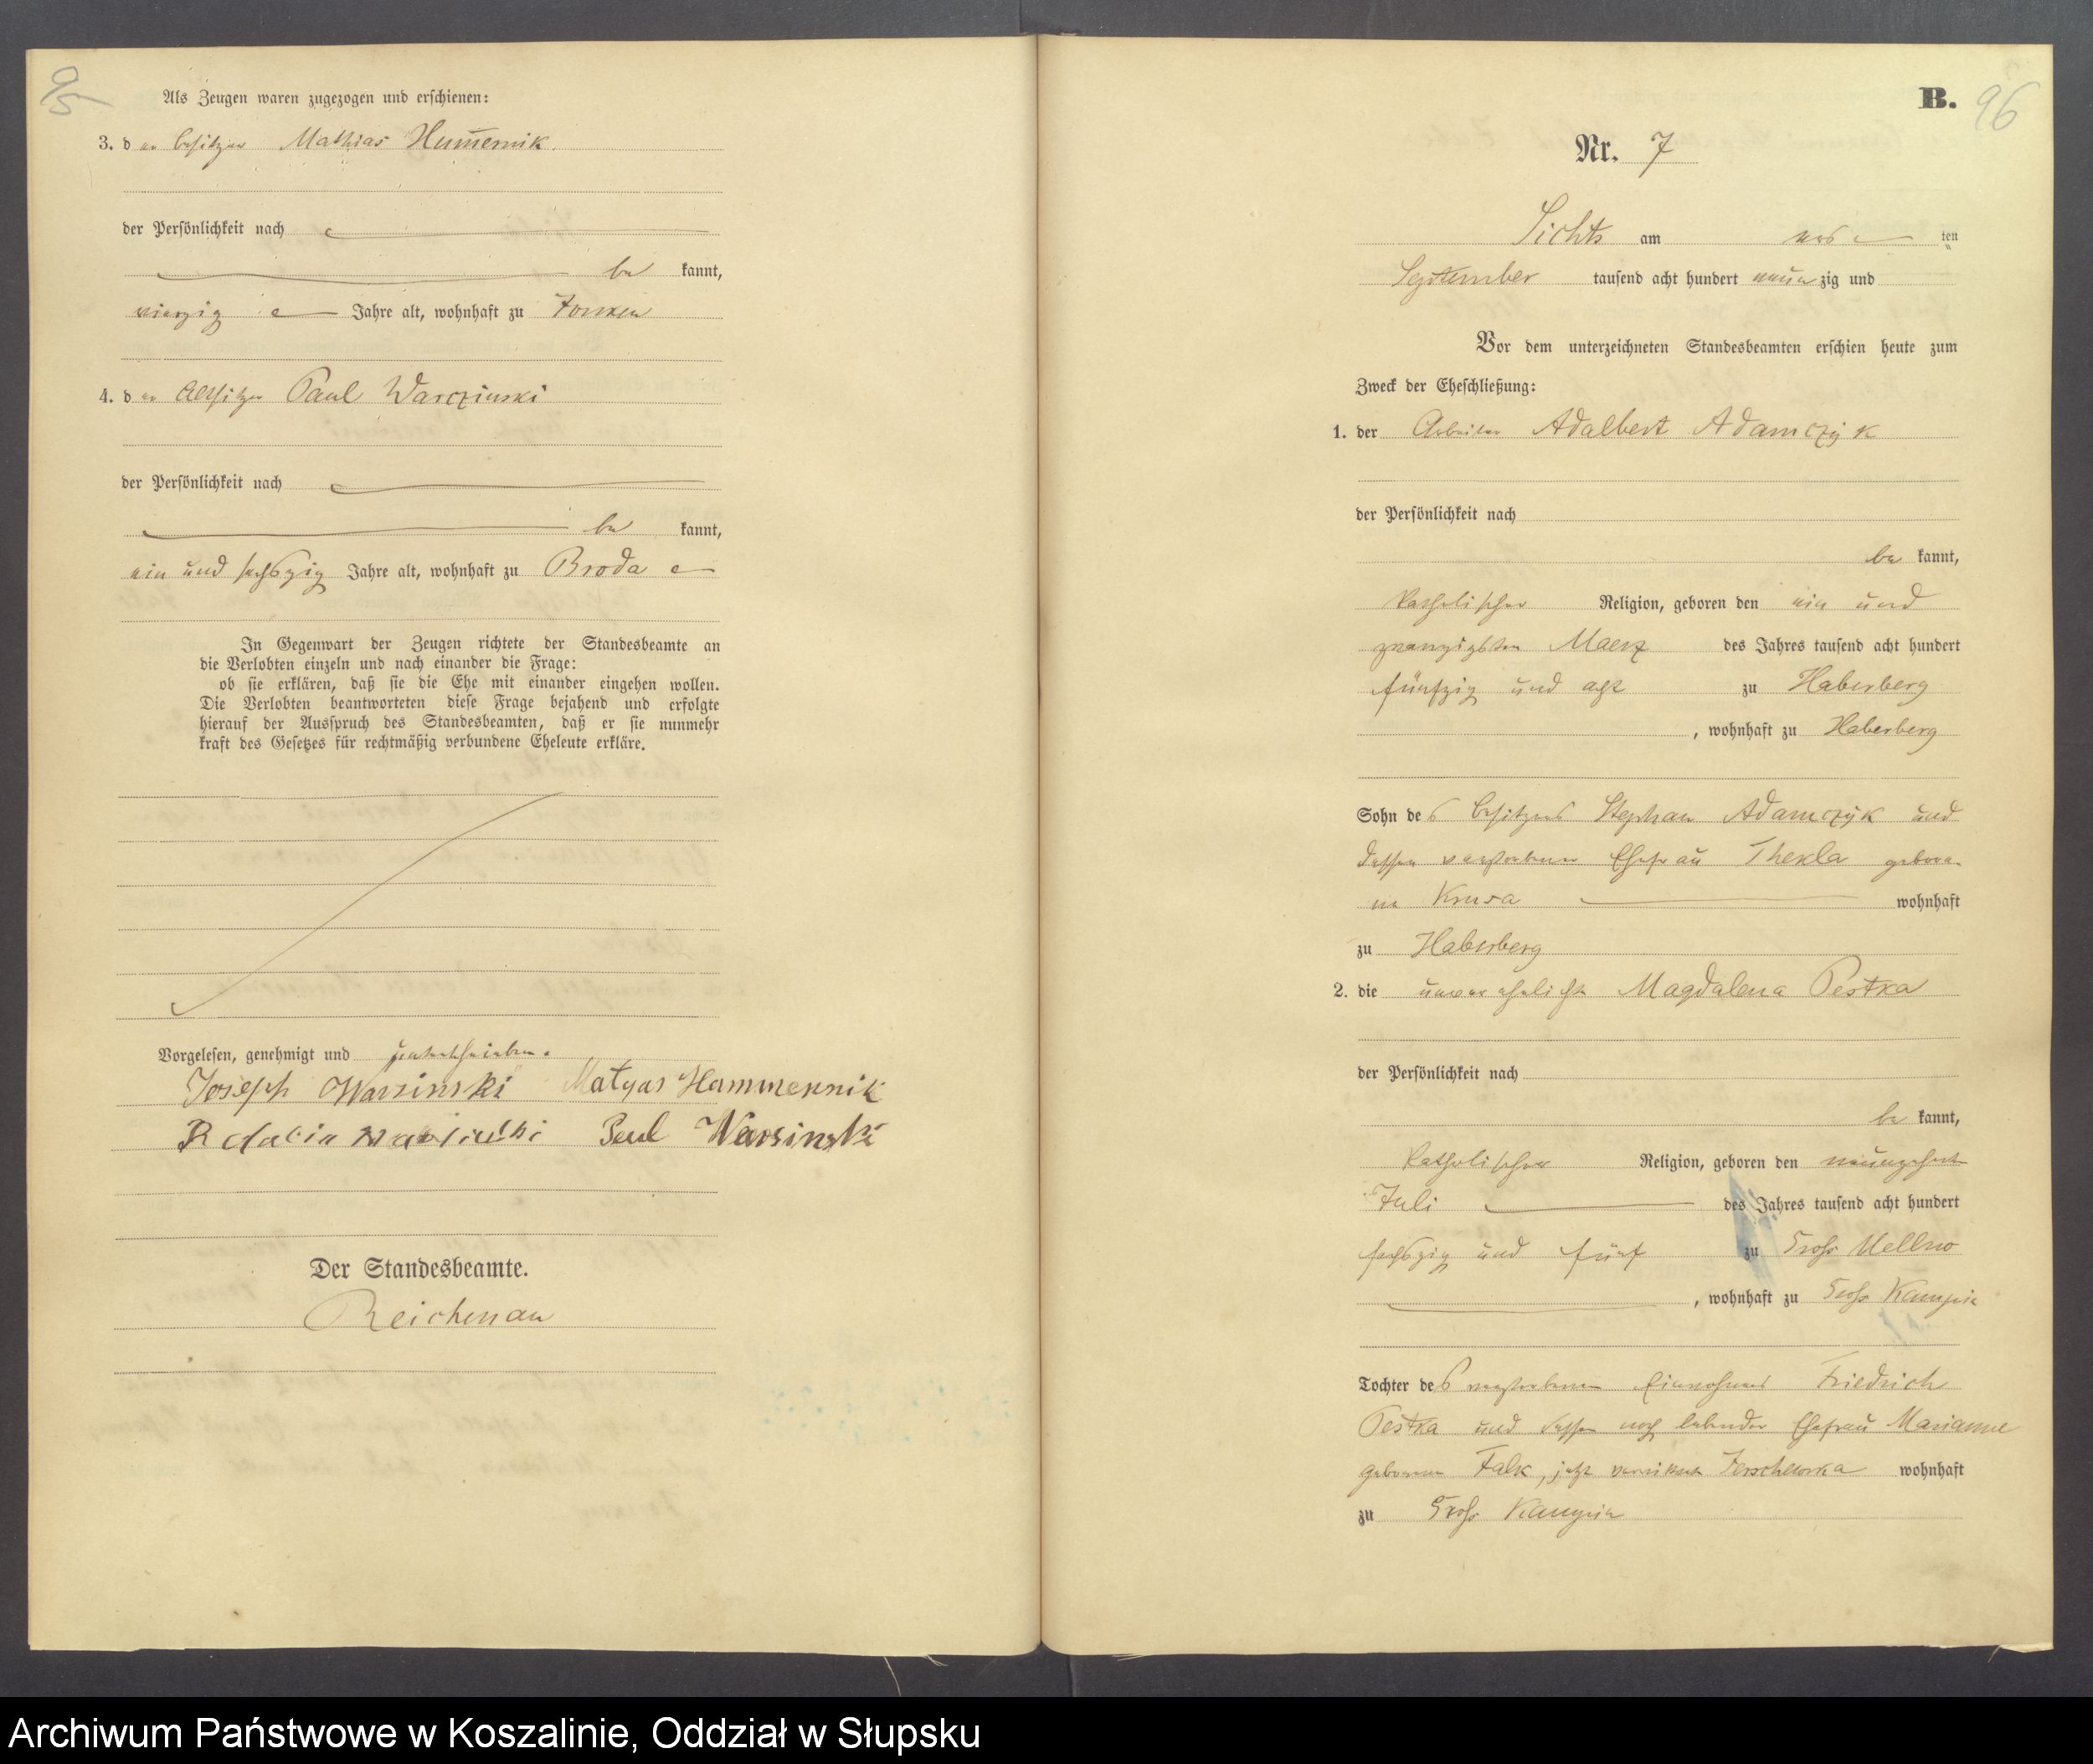 95
Als Zeugen waren zugezogen und erschienen:
3. der Besitzer Mathias Hum̄ernik
der Persönlichkeit nach
be kannt,
vierzig Jahre alt, wohnhaft zu
4. der Altsitzer Paul Warczinski
der Persönlichkeit nach
be kannt,
ein und sechszig Jahre alt, wohnhaft zu Broda
In Gegenwart der Zeugen richtete der Standesbeamte an
die Verlobten einzeln und nach einander die Frage:
ob sie erklären, daß sie die Ehe mit einander eingehen wollen.
Die Verlobten beantworteten diese Frage bejahend und erfolgte
hierauf der Ausspruch des Standesbeamten, daß er sie nunmehr
kraft des Gesetzes für rechtmäßig verbundene Eheleute erkläre.
Vorgelesen, genehmigt und unterschrieben.
Joseph Warzinski Matyas Hammernik
Paul Warsinski
Der Standesbeamte.
Reichenau
B. 96
Nr. 7
Lichts am ten
September tausend acht hundert neun zig und
Vor dem unterzeichneten Standesbeamten erschien heute zum
Zweck der Eheschließung:
1. der Arbeiter Adalbert Adamczÿk
der Persönlichkeit nach
be kannt,
katholischer Religion, geboren den ein und
zwanzigsten Maerz des Jahres tausend acht hundert
fünfzig und acht zu Haberberg
, wohnhaft zu Haberberg
Sohn des Besitzers Stephan Adamczÿk und
dessen verstorbenen Ehefrau Thekla gebore-
ne wohnhaft
zu Haberberg
2. die unverehelichte Magdalena Pestka
der Persönlichkeit nach
be kannt,
katholischer Religion, geboren den neunzehnten
Juli des Jahres tausend acht hundert
sechszig und fünf zu Gross Mellno
, wohnhaft zu Gross
Tochter des verstorbenen Einwohners Friedrich
Pestka und dessen noch lebender Ehefrau Marianne
geborene Falk, jetzt wohnhaft
zu Gross
Archiwum Państwowe w Koszalinie, Oddział w Słupsku